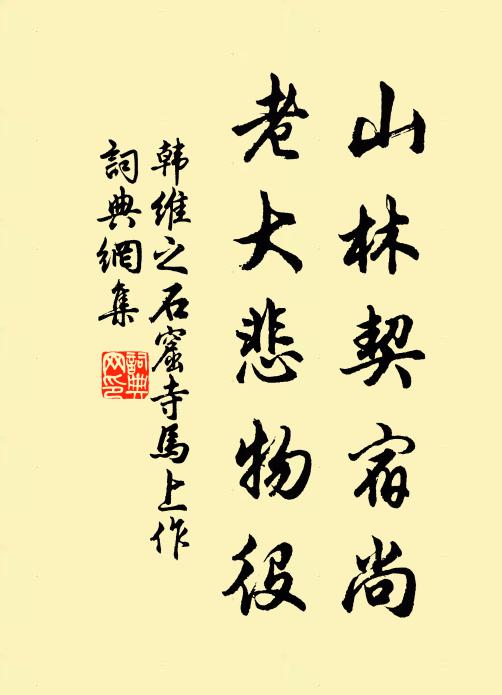 山林契宿尚
老大悲物役
韩维之石窟寺馬上作
詞典網集
詞典网印